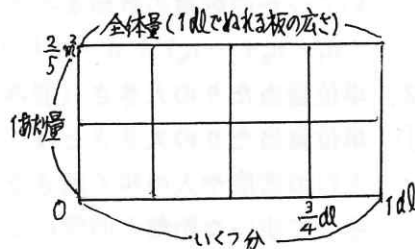 全体量(1dlでぬれる板の広さ)
2/5 m²
1あたり量
0
3/4 dl
1dl
いくつ分